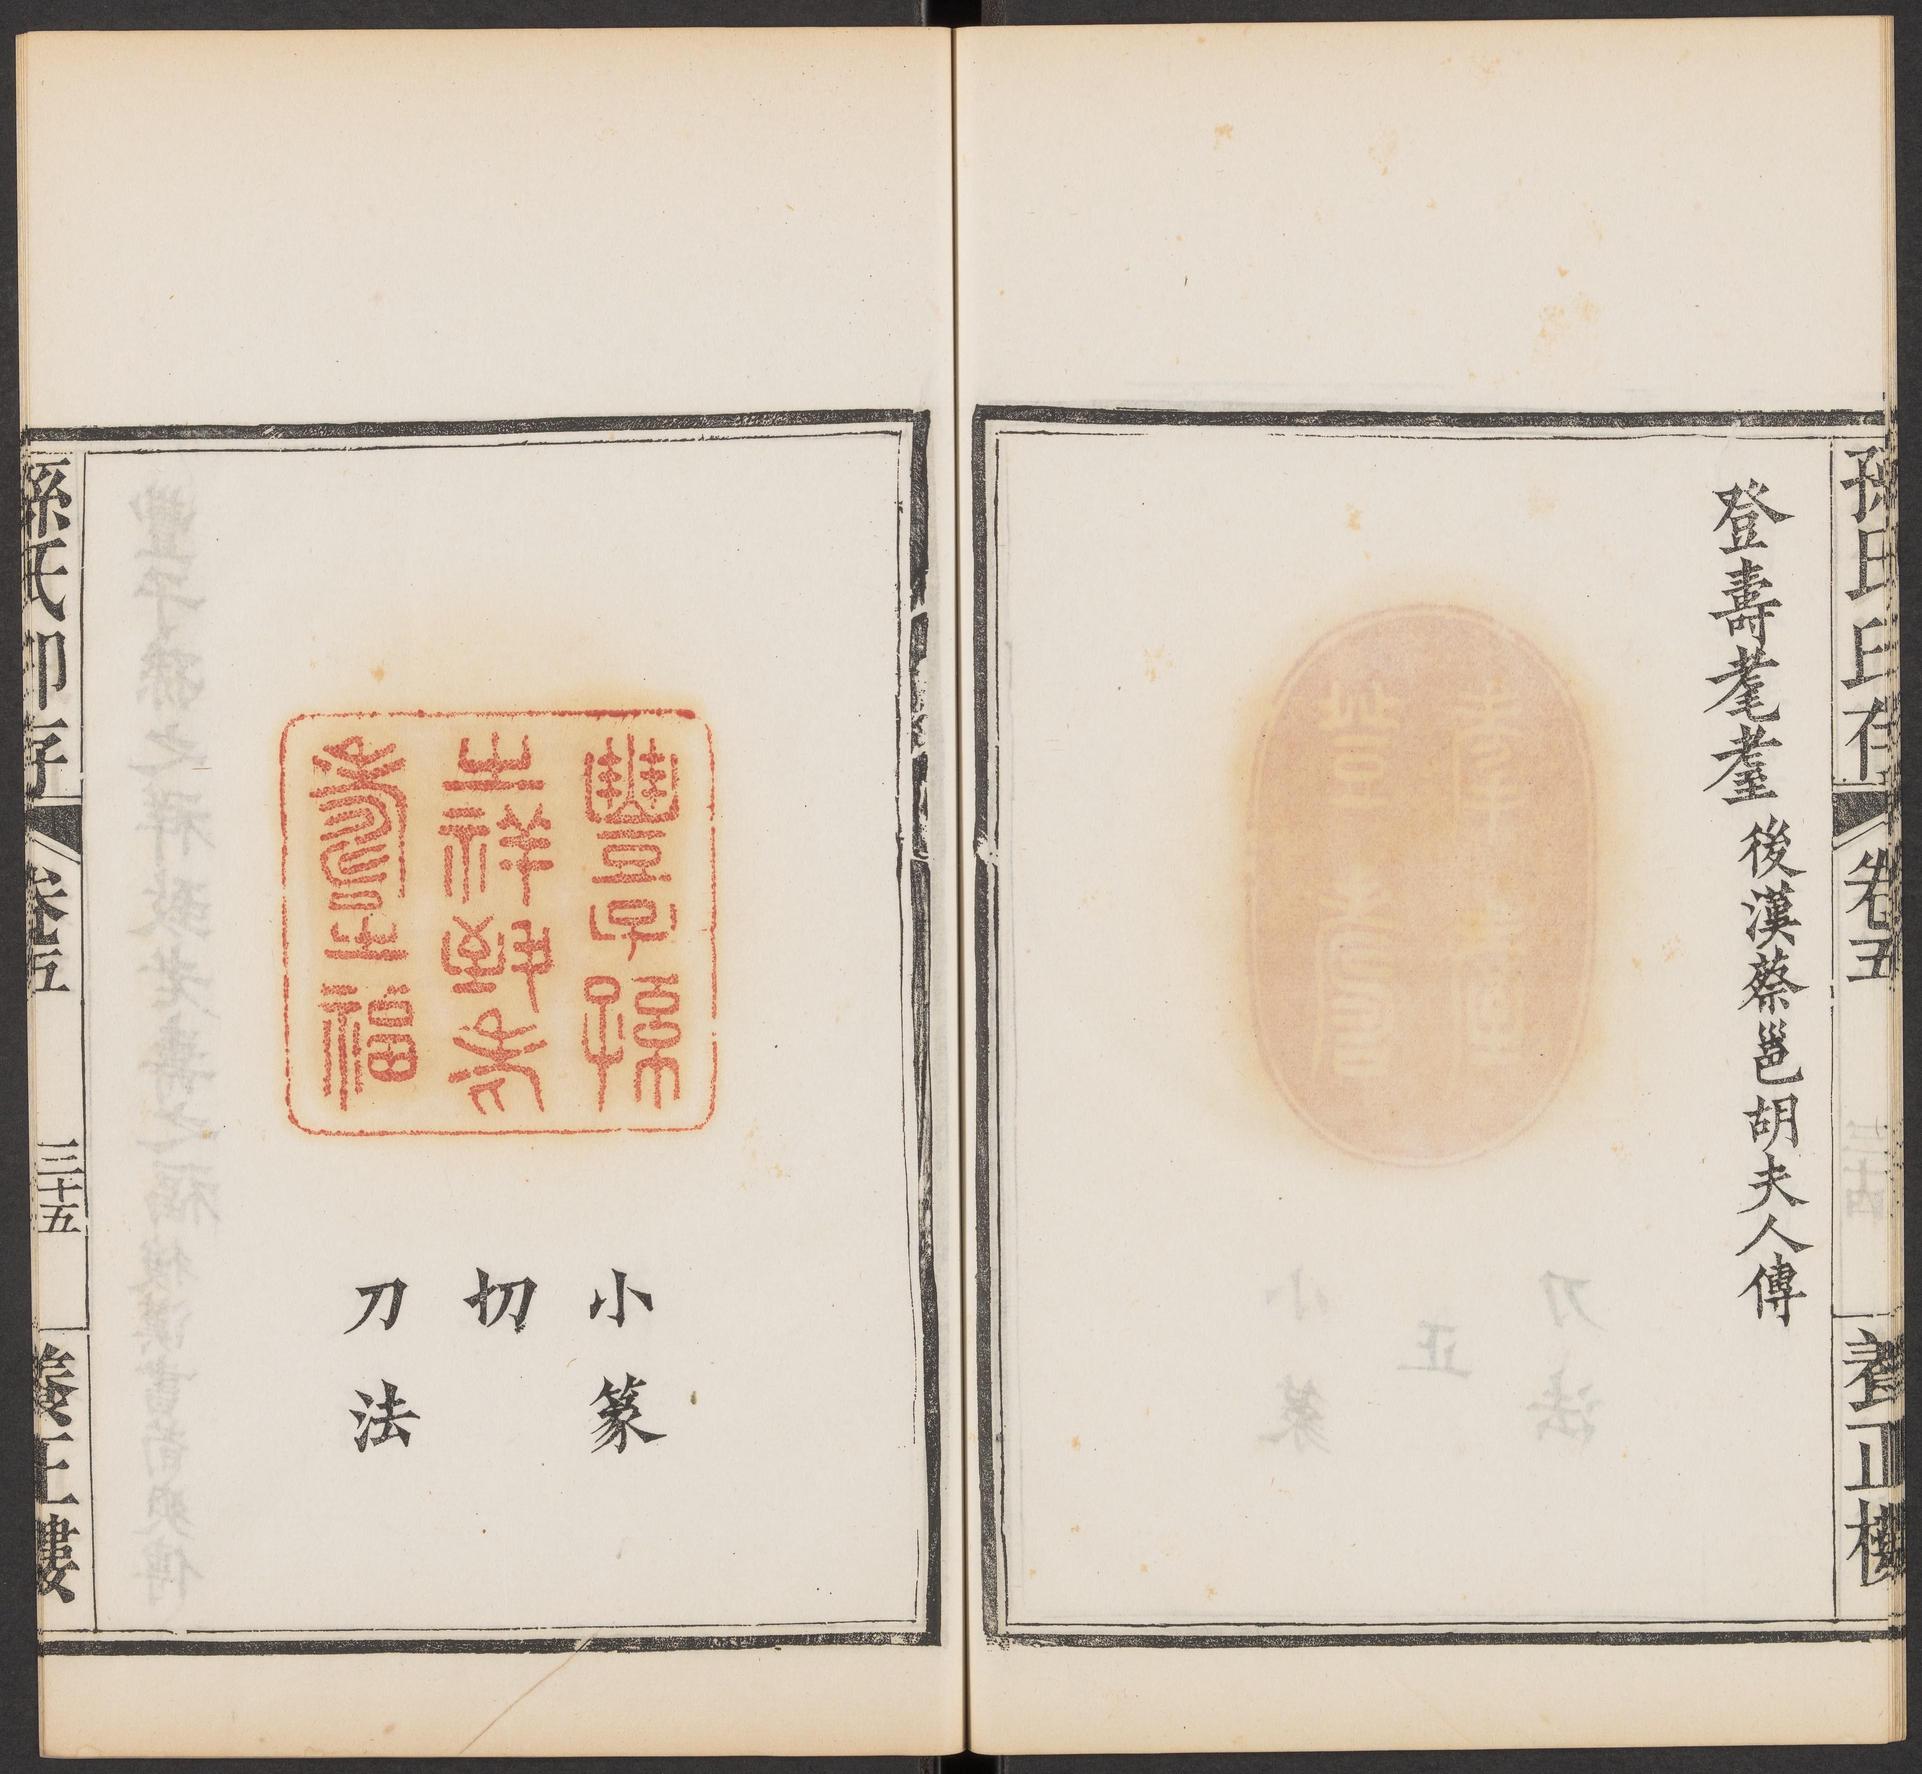 孫氏印存
卷五
養正樓
登壽耄耋 後漢蔡邕胡夫人傳
豐子孫
之祥致老
壽之福
小篆
切
刀法
孫氏印存
卷五
三十五
養正樓